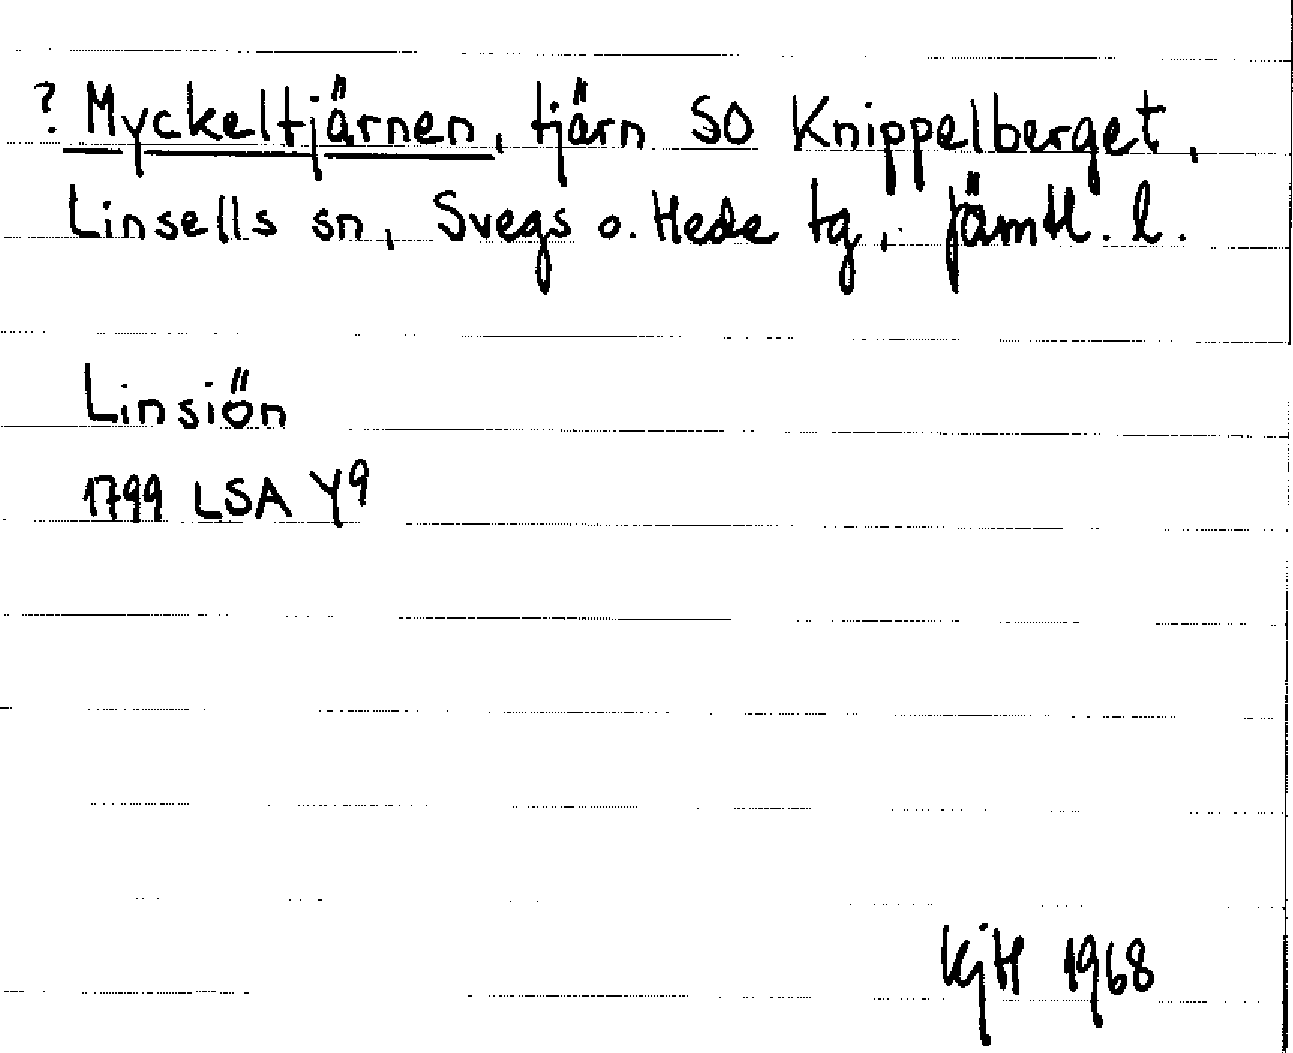 ? Myckeltjärnen, tjärn SO Knippelberget,
Linsells sn, Svegs o. Hede tg, Jämtl. l.
Linsiön
1799 LSA Y9
KjH 1968